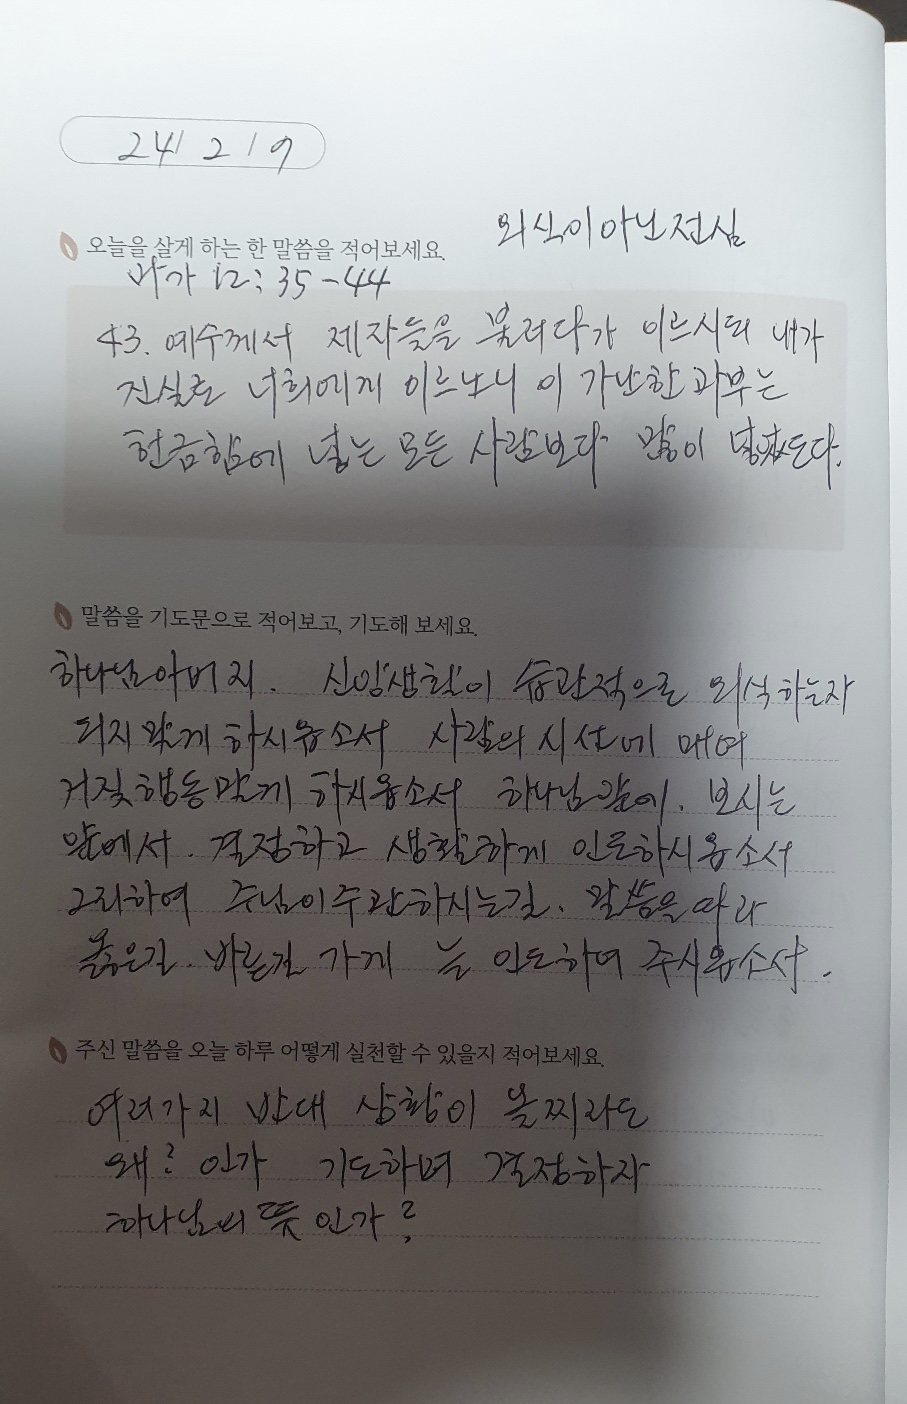 241219
외식이 아닌 전심
오늘을 살게 하는 한 말씀을 적어보세요.
마가 12:35-44
43. 예수께서 제자들을 불러다가 이르시되 내가
진실로 너희에게 이르노니 이 가난한 과부는
헌금함에 넣는 모든 사람보다 많이 넣었도다.
말씀을 기도문으로 적어보고, 기도해 보세요.
하나님아버지. 신앙생활이 습관적으로 외식하는자
되지 않게 하시옵소서 사람의 시선에 매여
거짓행동 않게 하시옵소서 하나님앞에. 보시는
앞에서. 결정하고 생활하게 인도하시옵소서
그리하여 주님이 주관하시는길. 말씀을 따라
옳은길. 바른길 가게 늘 인도하여 주시옵소서.
주신 말씀을 오늘 하루 어떻게 실천할 수 있을지 적어보세요.
여러가지 반대 상황이 올찌라도
왜? 인가 기도하며 결정하자
하나님의 뜻인가?